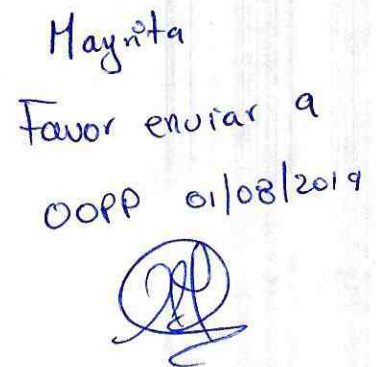 Mayrita
Favor enviar a
OOPP 01/08/2019